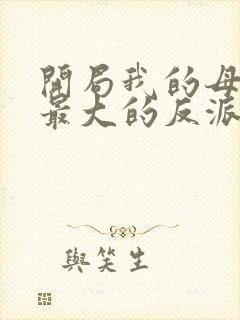 開局我的母
最大的反派
與笑生